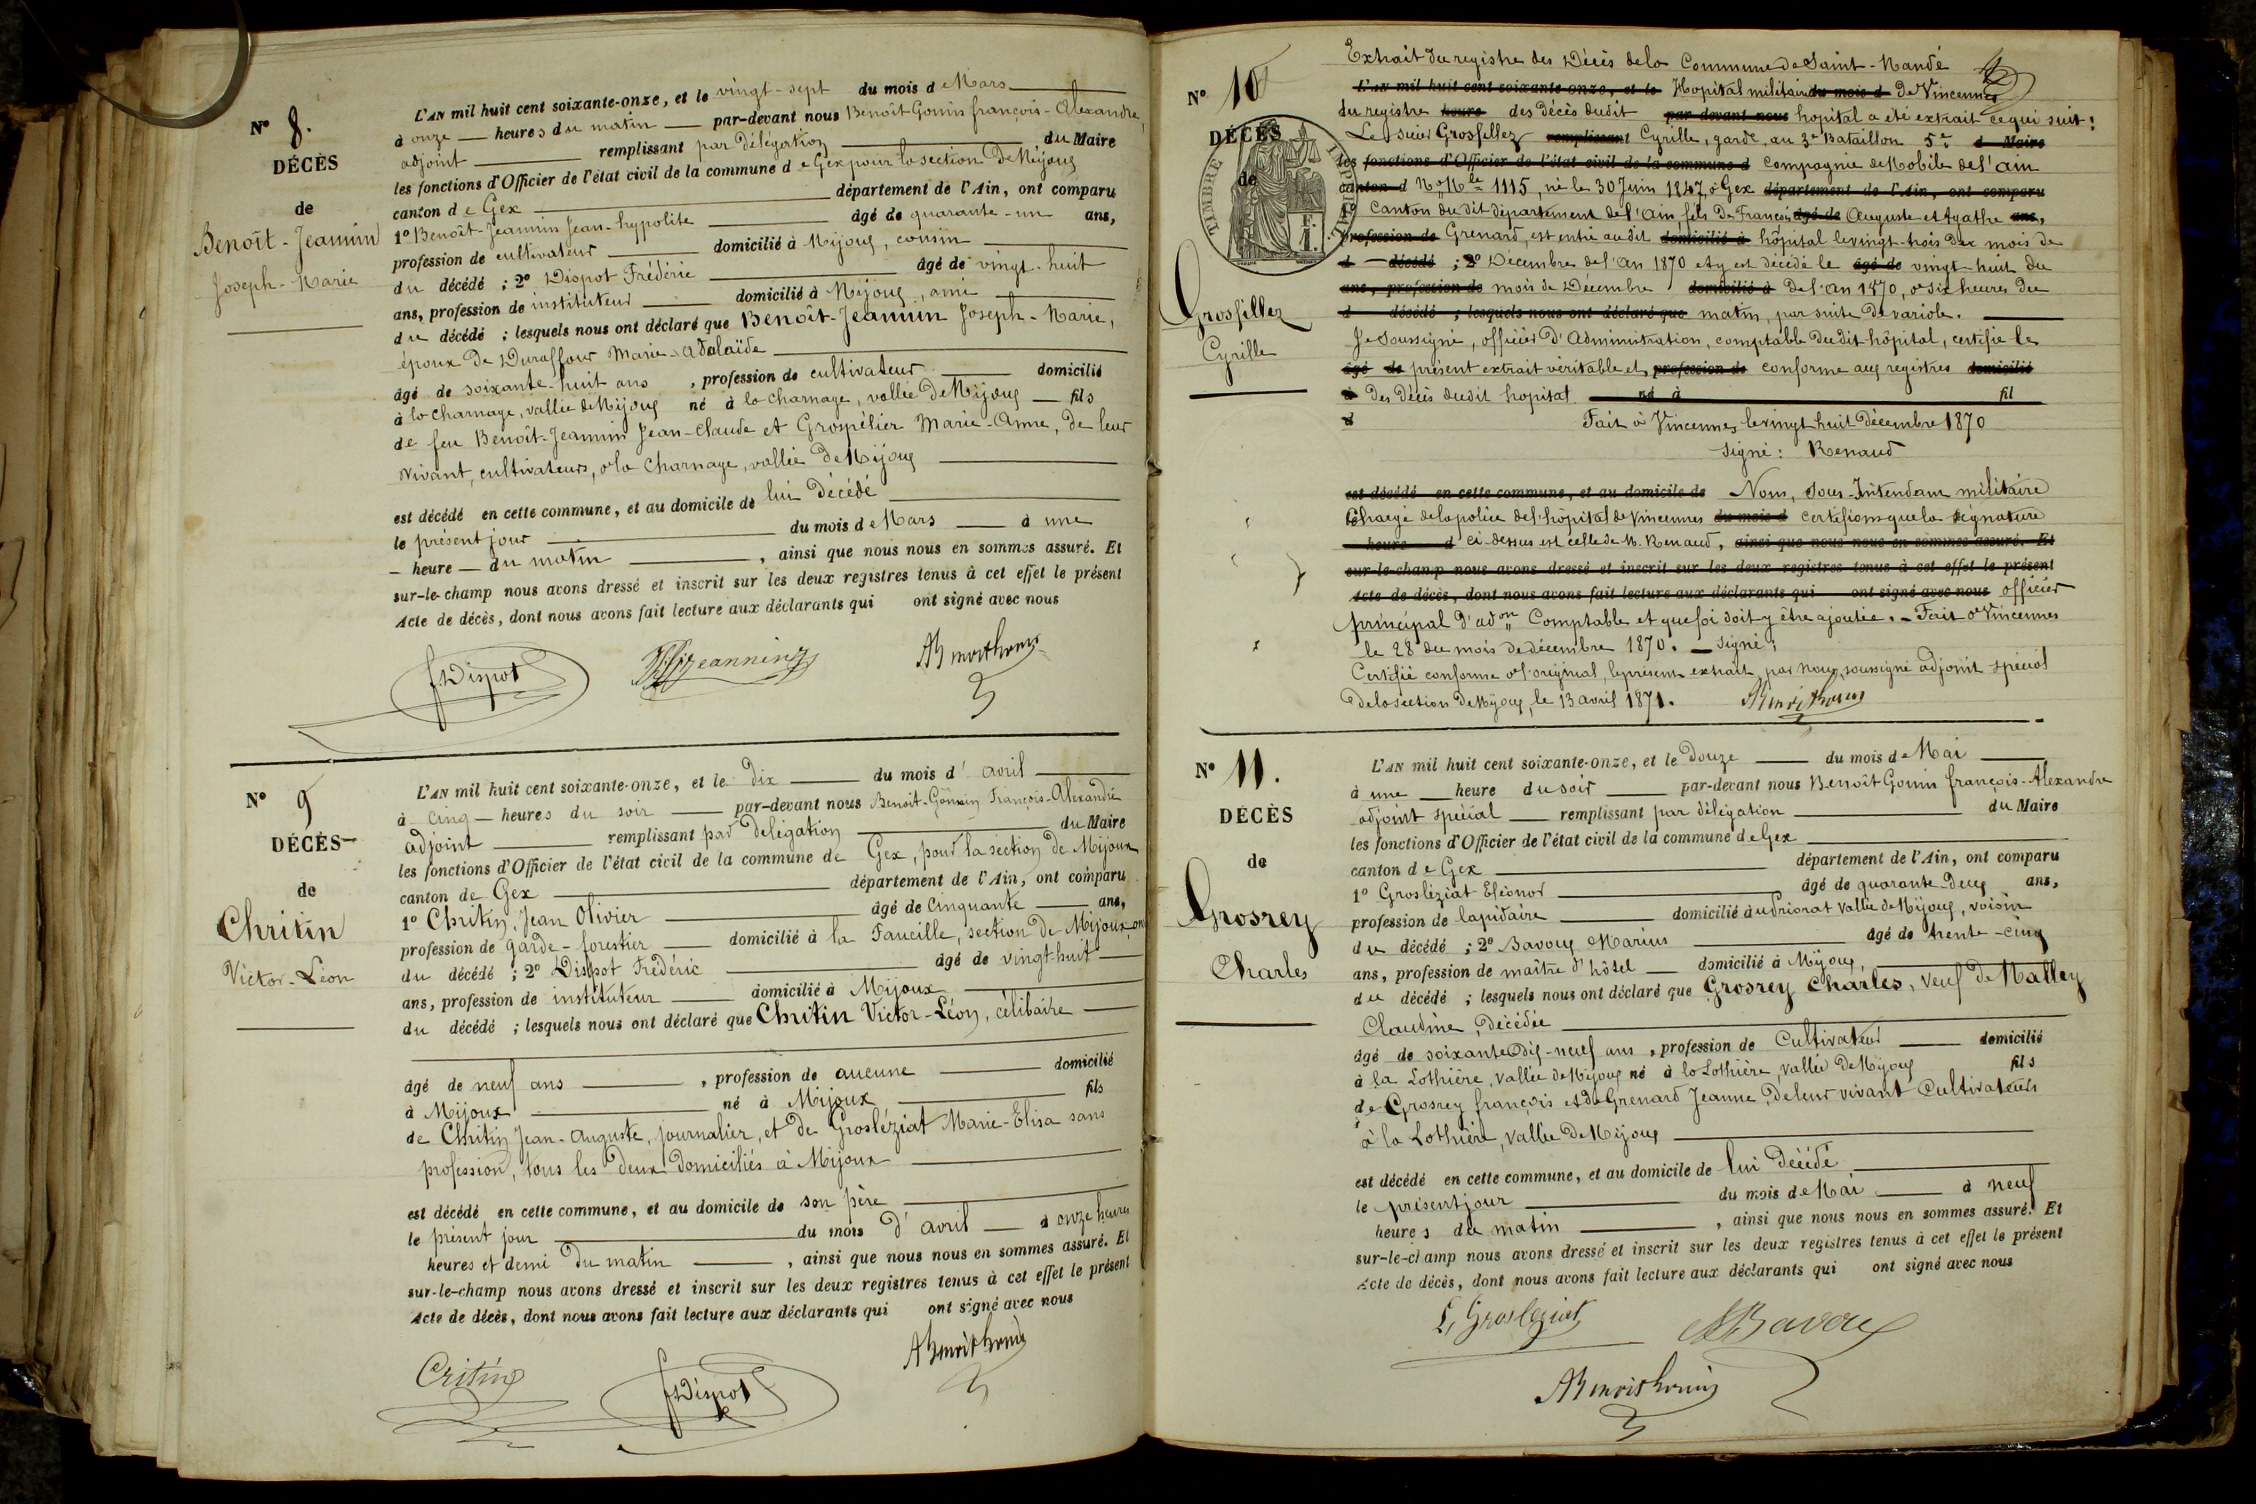 N° 8.
DÉCÈS
de
Benoît-Jeannin
Joseph-Marie
L'AN mil huit cent soixante-onze, et le vingt-sept du mois de Mars
à onze heures du matin par-devant nous Benoît-Gonin françois-Alexandre,
adjoint remplissant par délégation du Maire
les fonctions d'Officier de l'état civil de la commune de Gex pour la section de Mijoux
canton de Gex département de l'Ain, ont comparu
1° Benoît-Jeannin Jean-hyppolite âgé de quarante-un ans,
profession de cultivateur domicilié à Mijoux, cousin
du décédé ; 2° Dispot Frédéric âgé de vingt-huit
ans, profession de instituteur domicilié à Mijoux, ami
du décédé ; lesquels nous ont déclaré que Benoît-Jeannin Joseph-Marie,
époux de Duraffour Marie-adelaïde
âgé de soixante-huit ans , profession de cultivateur domicilié
à la charnaye, vallée de Mijoux né à la charnaye, vallée de Mijoux fils
de feu Benoît-Jeannin Jean-Claude et Grospélier Marie-Anne, de leur
vivant, cultivateurs, à la Charnaye, vallée de Mijoux
est décédé en cette commune, et au domicile de lui décédé
le présent jour du mois de Mars à une
heure du matin , ainsi que nous nous en sommes assuré. Et
sur-le-champ nous avons dressé et inscrit sur les deux registres tenus à cet effet le présent
Acte de décès, dont nous avons fait lecture aux déclarants qui ont signé avec nous
f Dispot
N° 9
DÉCÈS
de
Chritin
Victor-Léon
L'AN mil huit cent soixante-onze, et le dix du mois d' avril
à cinq heures du soir par-devant nous Benoit-Gonnin François-Alexandre
adjoint remplissant par délégation du Maire
les fonctions d'Officier de l'état civil de la commune de Gex, pour la section de Mijoux
canton de Gex département de l'Ain, ont comparu
1° Chritin, Jean Olivier âgé de cinquante ans,
profession de garde-forestier domicilié à la Faucille, section de Mijoux
du décédé ; 2° Dispot Frédéric âgé de vingt-huit
ans, profession de instituteur domicilié à Mijoux
du décédé ; lesquels nous ont déclaré que Chritin Victor-Léon, célibaire
âgé de neuf ans , profession de aucune domicilié
à Mijoux né à Mijoux fils
de Chritin Jean-Auguste, journalier, et de Grosléziat Marie-Elisa sans
profession, tous les deux domiciliés à Mijoux
est décédé en cette commune, et au domicile de son père
le présent jour du mois d' avril à onze heures
heures et demi du matin , ainsi que nous nous en sommes assuré. Et
sur-le-champ nous avons dressé et inscrit sur les deux registres tenus à cet effet le présent
Acte de décès, dont nous avons fait lecture aux déclarants qui ont signé avec nous
Critin
f Dispot
N° 10
DÉCÈS
de
TIMBRE IMPÉRIAL
Grosfillez
Cyrille
Extrait du registre des Décès de la Commune de Saint-Mandé
L'AN mil huit cent soixante-onze, et le Hopital militaire du mois d De Vincennes
du registre heure des décès dudit par-devant nous hopital a été extrait ce qui suit :
Le sieur Grosfillez remplissant Cyrille, garde, au 3e Bataillon 5e d Maire
les fonctions d'Officier de l'état civil de la commune d Compagnie de Mobile de l'ain
canton d No Mle 1115, né le 30 Juin 1847, à Gex département de l'Ain, ont comparu
1° Canton du dit département de l'ain fils de François âgé de Auguste et Agathe ans,
profession de Grenard, est entré au dit domicilié à hôpital le vingt-trois du mois de
d décédé ; 2° Décembre de l'an 1870 et y est décédé le âgé de vingt-huit du
ans, profession de mois de Décembre domicilié à de l'an 1870, à six heures du
d décédé ; lesquels nous ont déclaré que matin, par suite de variole.
Je soussigné, officier d'Administration, comptable du dit hôpital, certifie le
âgé de présent extrait véritable et profession de conforme aux registres domicilié
à Des Décès dudit hopital né à fil
d Fait à Vincennes le vingt huit Décembre 1870
signé : Renaud
est décédé en cette commune, et au domicile de Nous, Sous-Intendant militaire
Chargé de la police de l'hôpital de Vincennes du mois d certifions que la signature
heure d ci-dessus est celle de M. Renaud, ainsi que nous nous en sommes assuré. Et
sur-le-champ nous avons dressé et inscrit sur les deux registres tenus à cet effet le présent
Acte de décès, dont nous avons fait lecture aux déclarants qui ont signé avec nous officier
principal d'adon Comptable et que foi doit y être ajoutée. - Fait à Vincennes
le 28 du mois de décembre 1870. signé :
Certifié conforme à l'original, le présent extrait, par nous, soussigné adjoint spécial
de la section de Mijoux, le 13 avril 1871.
N° 11.
DÉCÈS
de
Grosrey
Charles
L'AN mil huit cent soixante-onze, et le Douze du mois de Mai
à une heure du soir par-devant nous Benoît Gonin françois-Alexandre
adjoint spécial remplissant par délégation du Maire
les fonctions d'Officier de l'état civil de la commune de Gex
canton de Gex département de l'Ain, ont comparu
1° Grosléziat Eléonor âgé de quarante-deux ans,
profession de lapidaire domicilié à udriorat vallée de Mijoux, voisin
du décédé ; 2° Bavoux Marius âgé de trente-cinq
ans, profession de maître d'hôtel domicilié à Mijoux,
du décédé ; lesquels nous ont déclaré que Grosrey Charles, veuf de Malley
Claudine, décédée
âgé de soixante dix-neuf ans , profession de Cultivateur domicilié
à la Lothière, vallée de Mijoux né à la Lothière, vallée de Mijoux fils
de Grosrey françois et de Grenard Jeanne, de leur vivant Cultivateurs
à la Lothière, vallée de Mijoux
est décédé en cette commune, et au domicile de lui décédé
le présent jour du mois de Mai à neuf
heures du matin , ainsi que nous nous en sommes assuré. Et
sur-le-champ nous avons dressé et inscrit sur les deux registres tenus à cet effet le présent
Acte de décès, dont nous avons fait lecture aux déclarants qui ont signé avec nous
E, Grosleziat ABavoux